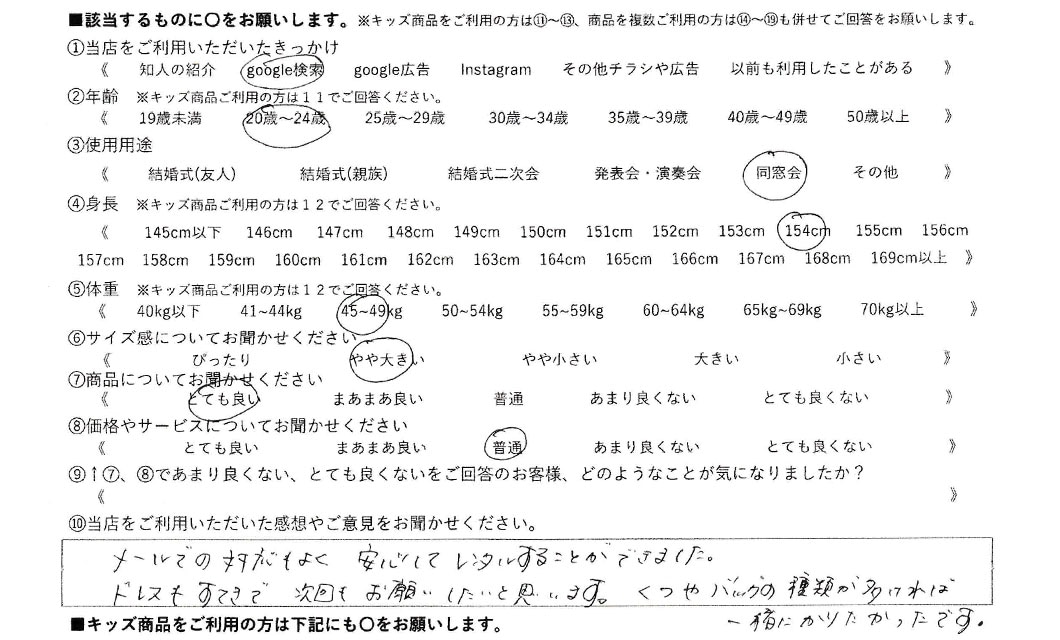 ■該当するものに〇をお願いします。※キッズ商品をご利用の方は⑪～⑬、商品を複数ご利用の方は⑭～⑲も併せてご回答をお願いします。
①当店をご利用いただいたきっかけ
《 知人の紹介 google検索 google広告 Instagram その他チラシや広告 以前も利用したことがある 》
②年齢 ※キッズ商品ご利用の方は１１でご回答ください。
《 19歳未満 20歳～24歳 25歳～29歳 30歳～34歳 35歳～39歳 40歳～49歳 50歳以上 》
③使用用途
《 結婚式(友人) 結婚式(親族) 結婚式二次会 発表会・演奏会 同窓会 その他 》
④身長 ※キッズ商品ご利用の方は１２でご回答ください。
《 145cm以下 146cm 147cm 148cm 149cm 150cm 151cm 152cm 153cm 154cm 155cm 156cm
157cm 158cm 159cm 160cm 161cm 162cm 163cm 164cm 165cm 166cm 167cm 168cm 169cm以上 》
⑤体重 ※キッズ商品ご利用の方は１２でご回答ください。
《 40kg以下 41~44kg 45~49kg 50~54kg 55~59kg 60~64kg 65kg~69kg 70kg以上 》
⑥サイズ感についてお聞かせください
《 ぴったり やや大きい やや小さい 大きい 小さい 》
⑦商品についてお聞かせください
《 とても良い まあまあ良い 普通 あまり良くない とても良くない 》
⑧価格やサービスについてお聞かせください
《 とても良い まあまあ良い 普通 あまり良くない とても良くない 》
⑨↑⑦、⑧であまり良くない、とても良くないをご回答のお客様、どのようなことが気になりましたか？
《 》
⑩当店をご利用いただいた感想やご意見をお聞かせください。
メールでの対応もよく 安心してレンタルすることができました。
ドレスもすてきで 次回もお願いしたいと思います。くつやバッグの種類が多ければ
一緒にかりたかったです。
■キッズ商品をご利用の方は下記にも〇をお願いします。